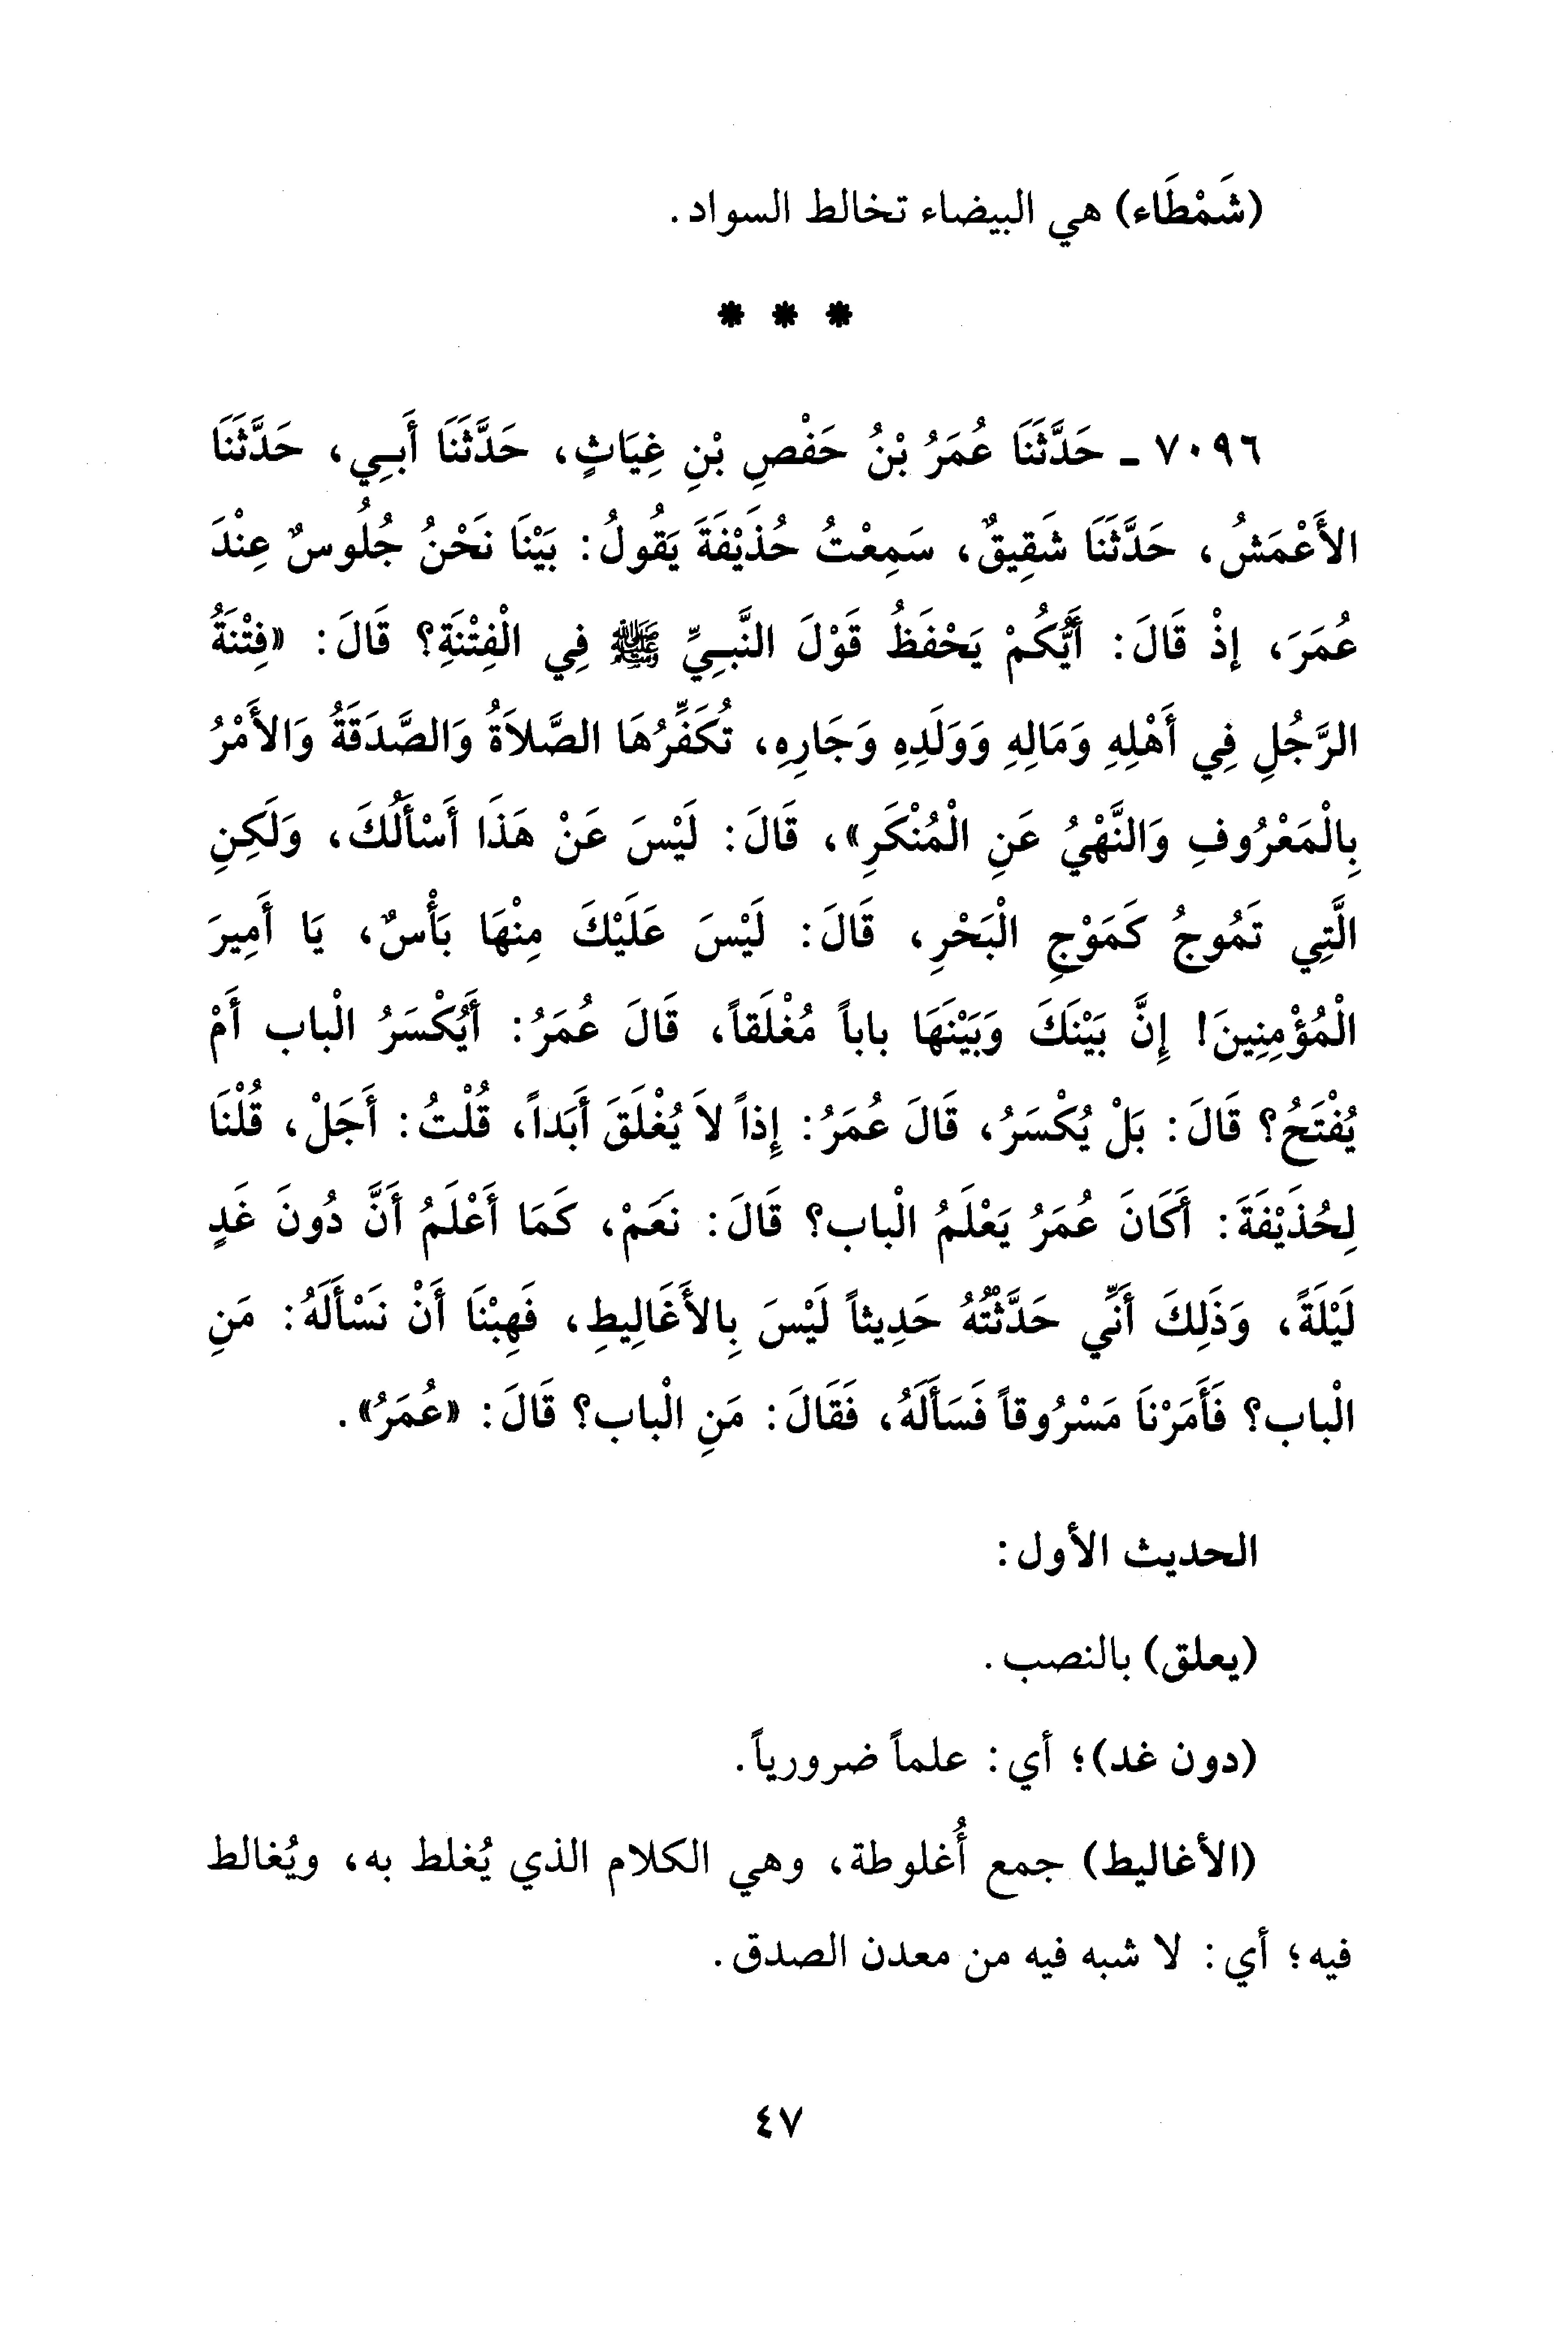 (شَمْطَاء) هي البيضاء تخالط السواد.
* * *
٧٠٩٦ - حَدَّثَنَا عُمَرُ بْنُ حَفْصِ بْنِ غِيَاثٍ، حَدَّثَنَا أَبِي، حَدَّثَنَا
الأَعْمَشُ، حَدَّثَنَا شَقِيقٌ، سَمِعْتُ حُذَيْفَةَ يَقُولُ: بَيْنَا نَحْنُ جُلُوسٌ عِنْدَ
عُمَرَ، إِذْ قَالَ: أَيُّكُمْ يَحْفَظُ قَوْلَ النَّبِيِّ ﷺ فِي الْفِتْنَةِ؟ قَالَ: «فِتْنَةُ
الرَّجُلِ فِي أَهْلِهِ وَمَالِهِ وَوَلَدِهِ وَجَارِهِ، تُكَفِّرُهَا الصَّلاَةُ وَالصَّدَقَةُ وَالأَمْرُ
بِالْمَعْرُوفِ وَالنَّهْيُ عَنِ الْمُنْكَرِ»، قَالَ: لَيْسَ عَنْ هَذَا أَسْأَلُكَ، وَلَكِنِ
الَّتِي تَمُوجُ كَمَوْجِ الْبَحْرِ، قَالَ: لَيْسَ عَلَيْكَ مِنْهَا بَأْسٌ، يَا أَمِيرَ
الْمُؤْمِنِينَ! إِنَّ بَيْنَكَ وَبَيْنَهَا باباً مُغْلَقاً، قَالَ عُمَرُ: أَيُكْسَرُ الْباب أَمْ
يُفْتَحُ؟ قَالَ: بَلْ يُكْسَرُ، قَالَ عُمَرُ: إِذاً لاَ يُغْلَقَ أَبَداً، قُلْتُ: أَجَلْ، قُلْنَا
لِحُذَيْفَةَ: أَكَانَ عُمَرُ يَعْلَمُ الْباب؟ قَالَ: نَعَمْ، كَمَا أَعْلَمُ أَنَّ دُونَ غَدٍ
لَيْلَةً، وَذَلِكَ أَنِّي حَدَّثْتُهُ حَدِيثاً لَيْسَ بِالأَغَالِيطِ، فَهِبْنَا أَنْ نَسْأَلَهُ: مَنِ
الْباب؟ فَأَمَرْنَا مَسْرُوقاً فَسَأَلَهُ، فَقَالَ: مَنِ الْباب؟ قَالَ: «عُمَرُ».
الحديث الأول:
(يعلق) بالنصب.
(دون غد)؛ أي: علماً ضرورياً.
(الأغاليط) جمع أُغلوطة، وهي الكلام الذي يُغلط به، ويُغالط
فيه؛ أي: لا شبه فيه من معدن الصدق.
٤٧